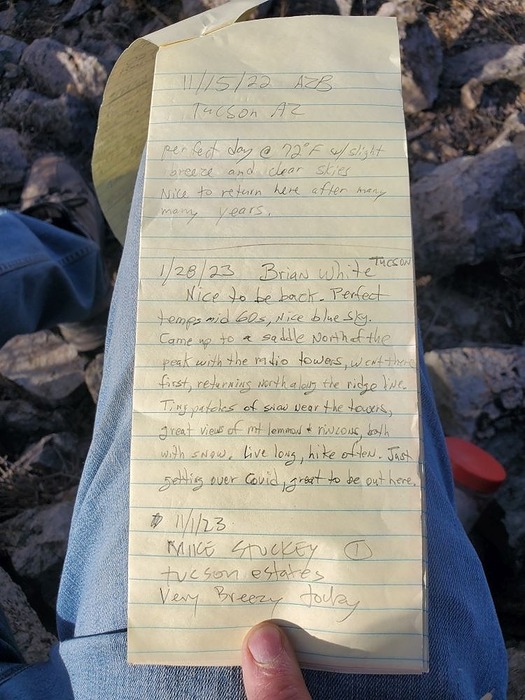 11/15/22 AZB
Tucson AZ
perfect day @ 72°F w/ slight
breeze and clear skies
Nice to return here after many
many years.
1/28/23 Brian White Tucson
Nice to be back. Perfect
temps mid 60s, Nice blue sky.
Came up to a saddle North of the
peak with the radio towers, went there
first, returning North along the ridge line.
Tiny patches of snow near the towers,
great views of mt lemmon + rincons, both
with snow. Live long, hike often. Just
getting over Covid, great to be out here.
11/1/23
MIKE STUCKEY 1
tucson estates
Very Breezy today